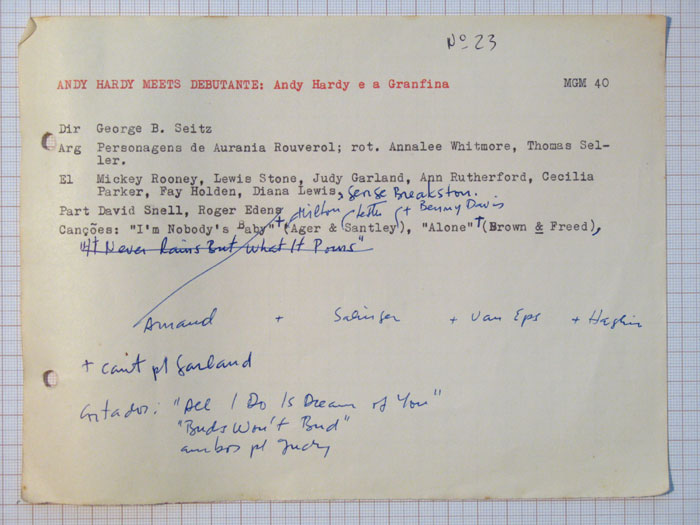 Nº 23
ANDY HARDY MEETS DEBUTANTE: Andy Hardy e a Granfina MGM 40
Dir George B. Seitz
Arg Personagens de Aurania Rouverol; rot. Annalee Whitmore, Thomas Sel-
ler.
El Mickey Rooney, Lewis Stone, Judy Garland, Ann Rutherford, Cecilia
Parker, Fay Holden, Diana Lewis, George Breakston.
Part David Snell, Roger Edens + Milton + Benny Davis
Canções: "I'm Nobody's Baby" (Ager & Santley), "Alone" (Brown & Freed),
"It Never Rains But What It Pours"
Arnaud + Salinger + Van Eps +
+ cant pl Garland
Citados: "All I Do Is Dream of You"
"Buds Won't Bud"
ambos pl Judy